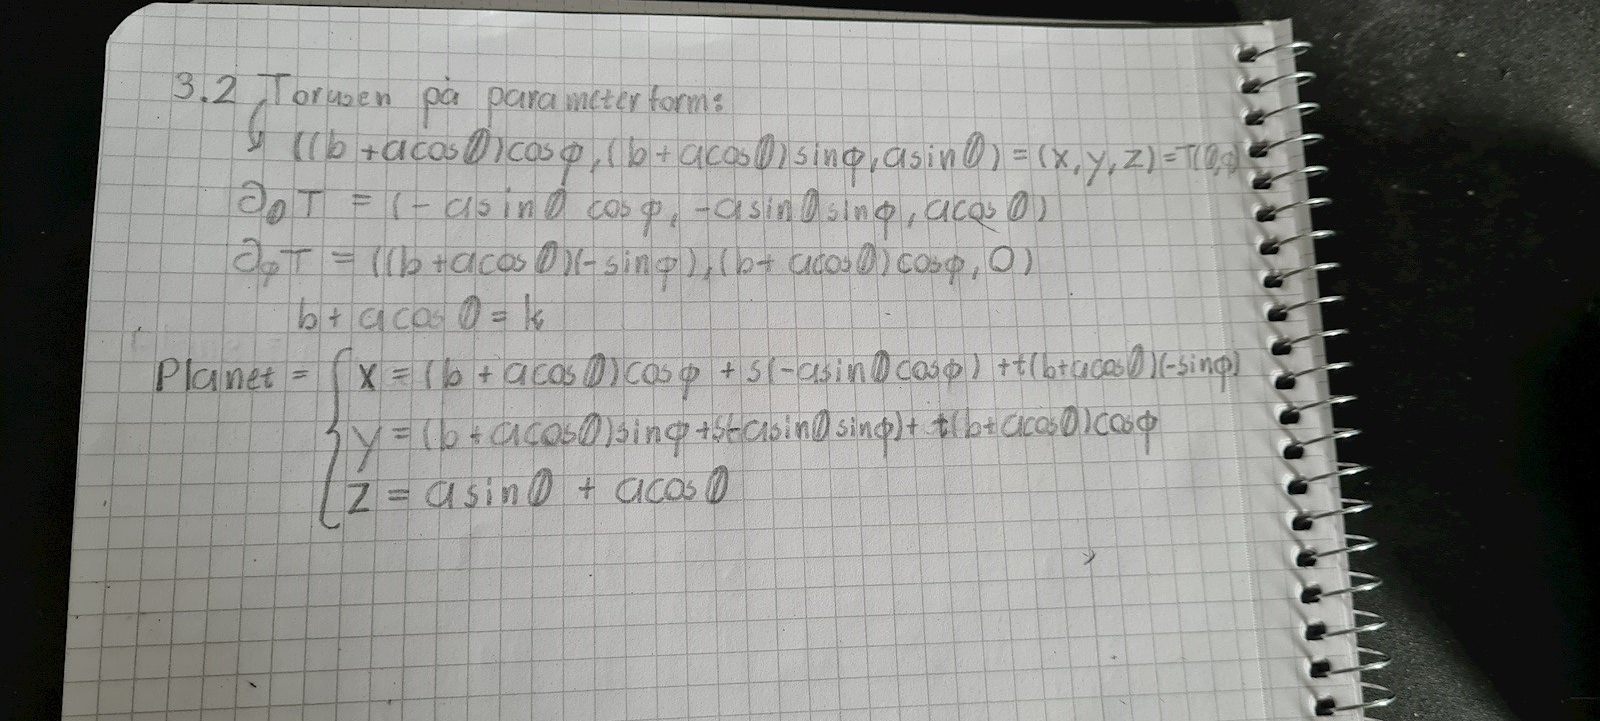 3.2 Torusen på parameterform:
↓ ((b+acosθ)cosφ, (b+acosθ)sinφ, asinθ) = (x, y, z) = T(θ,φ)
∂θT = (-asinθ cosφ, -asinθsinφ, acosθ)
∂φT = ((b+acosθ)(-sinφ), (b+acosθ)cosφ, 0)
b + acosθ = k
Planet = { x = (b+acosθ)cosφ + s(-asinθcosφ) + t(b+acosθ)(-sinφ)
y = (b+acosθ)sinφ + s(-asinθsinφ) + t(b+acosθ)cosφ
z = asinθ + acosθ